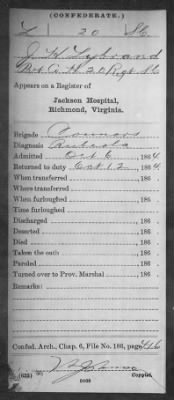 (CONFEDERATE.)
L 20 SC
J. H. Lybrand
Pvt. Co. H. 20 Regt. SC
Appears on a Register of
Jackson Hospital,
Richmond, Virginia.
Brigade Conners
Diagnosis Rubeola
Admitted Oct 6, 1864
Returned to duty Oct 12, 1864.
When transferred , 186 .
Where transferred
When furloughed , 186 .
Time furloughed
Discharged , 186 .
Deserted , 186 .
Died , 186 .
Taken the oath , 186 .
Paroled , 186 .
Turned over to Prov. Marshal , 186 .
Remarks:
Confed. Arch., Chap. 6, File No. 186, page 416
(635)
Copyist.